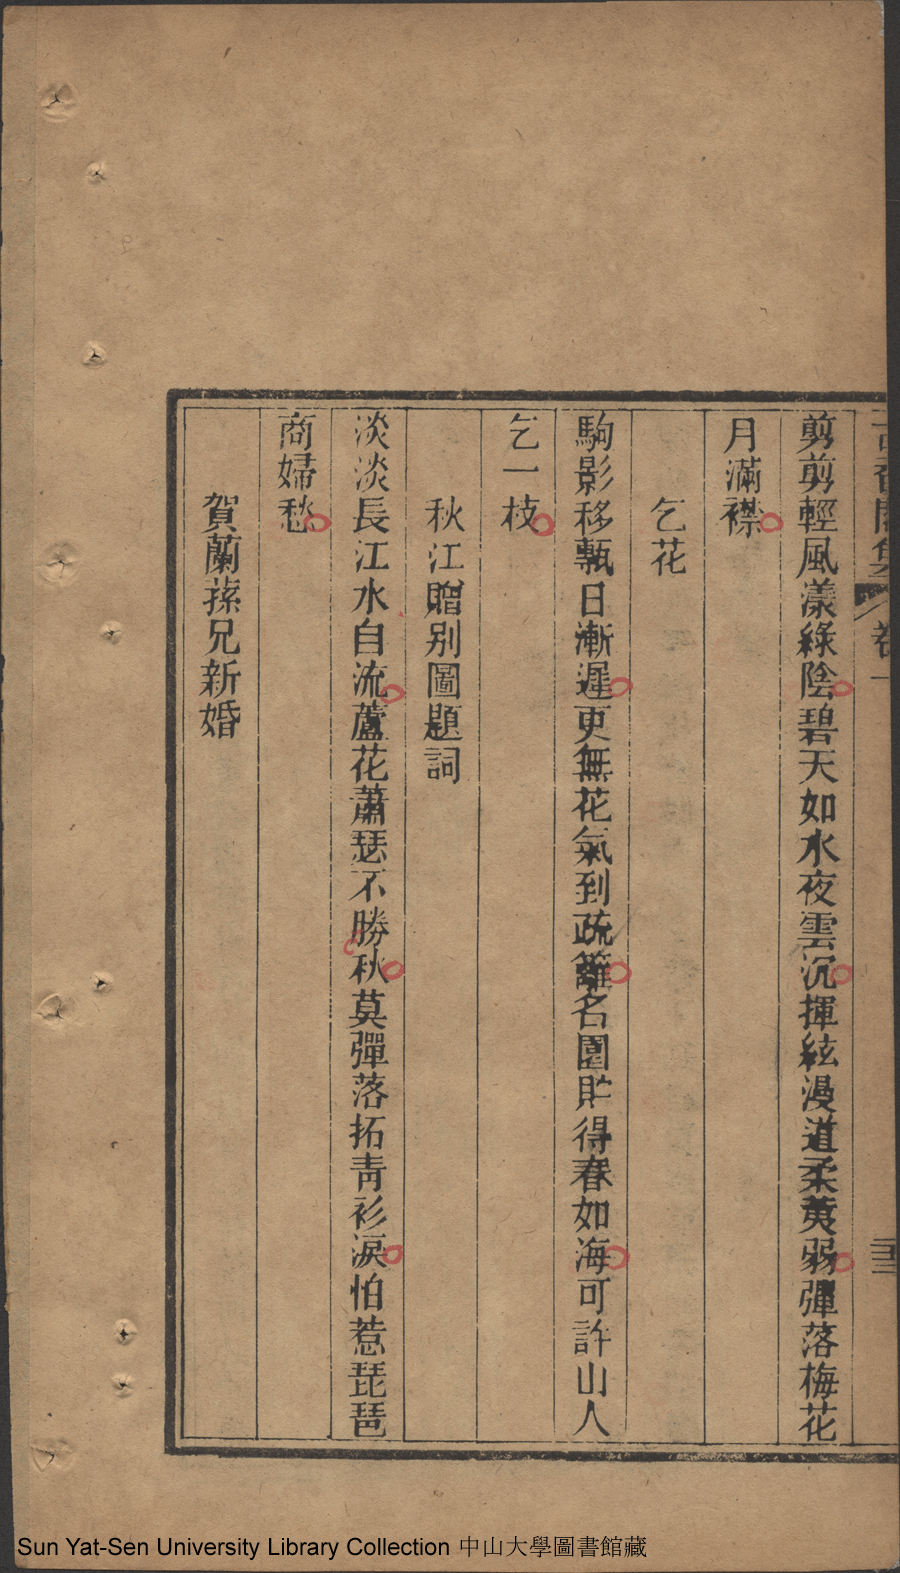 剪剪輕風漾綠陰碧天如水夜雲沉揮絃漫道柔荑弱彈落梅花
月滿襟
乞花
駒影移甎日漸遲更無花氣到疏籬名園貯得春如海可許山人
乞一枝
秋江贈別圖題詞
淡淡長江水自流蘆花蕭瑟不勝秋莫彈落拓青衫淚怕惹琵琶
商婦愁
賀蘭蓀兄新婚
Sun Yat-Sen University Library Collection 中山大學圖書館藏